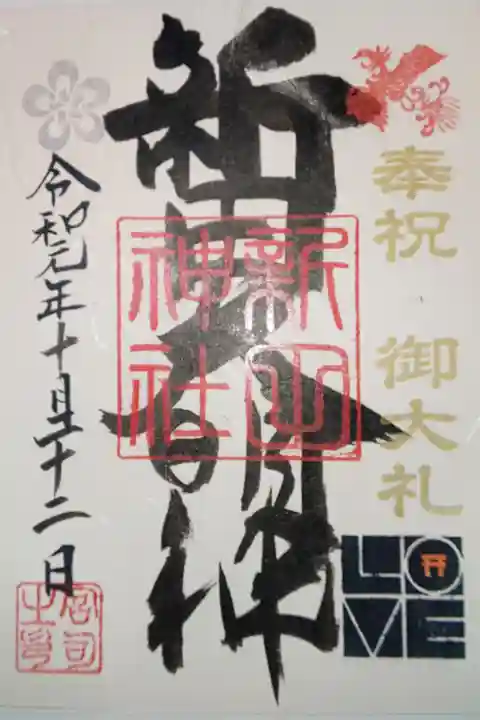 奉祝 御大礼
LOVE
新田大明神
新田神社
令和元年十月二十二日
宮司之印